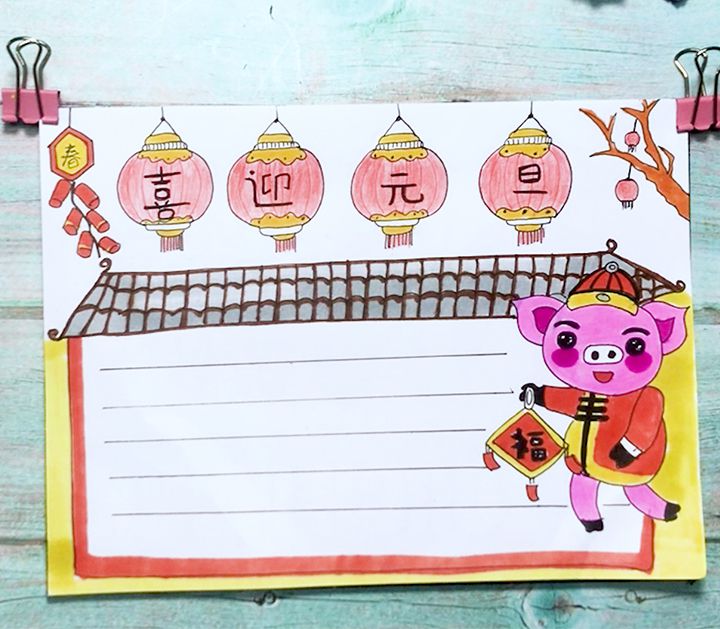 春
喜迎元旦
福